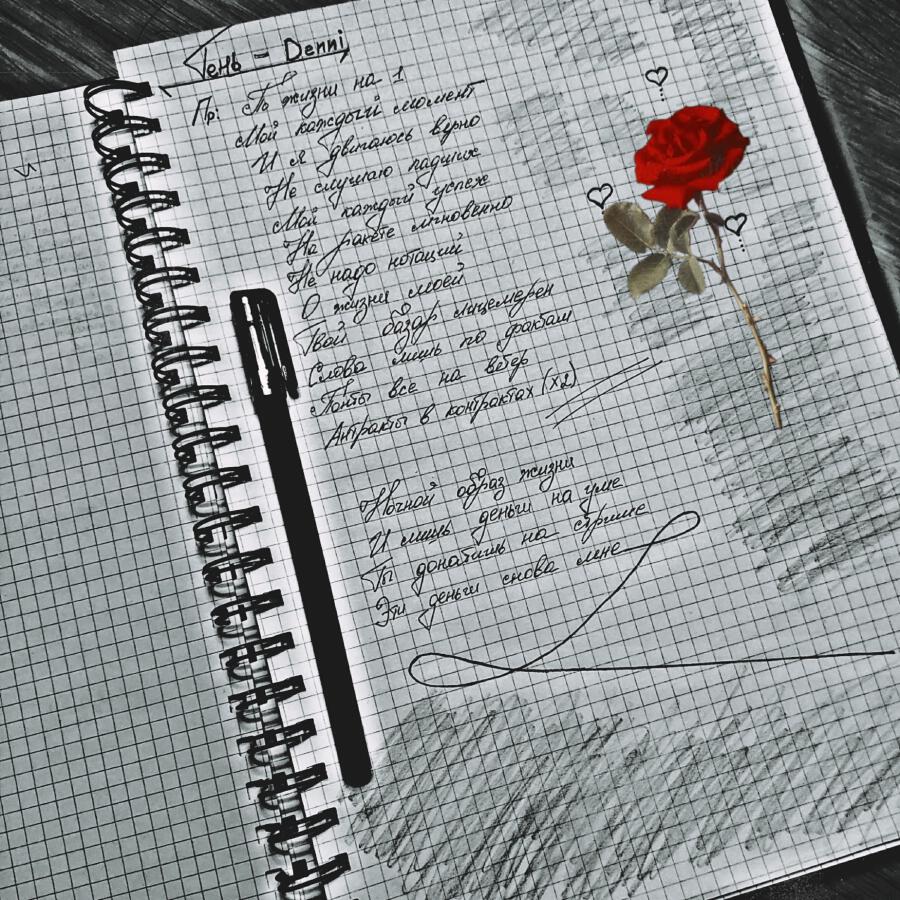 Тень - Denni
Пр: По жизни на 1
Мой каждый момент
И я двигаюсь верно
Не слушаю падших
Мой каждый успех
На ракете мгновенно
Не надо нотаций
О жизни моей
Твой базар лицемерен
Слова лишь по фактам
Понты все на ветер
Антракты в контрактах (x2)
Ночной образ жизни
И лишь деньги на уме
Ты донатишь на стриме
Эти деньги снова мне